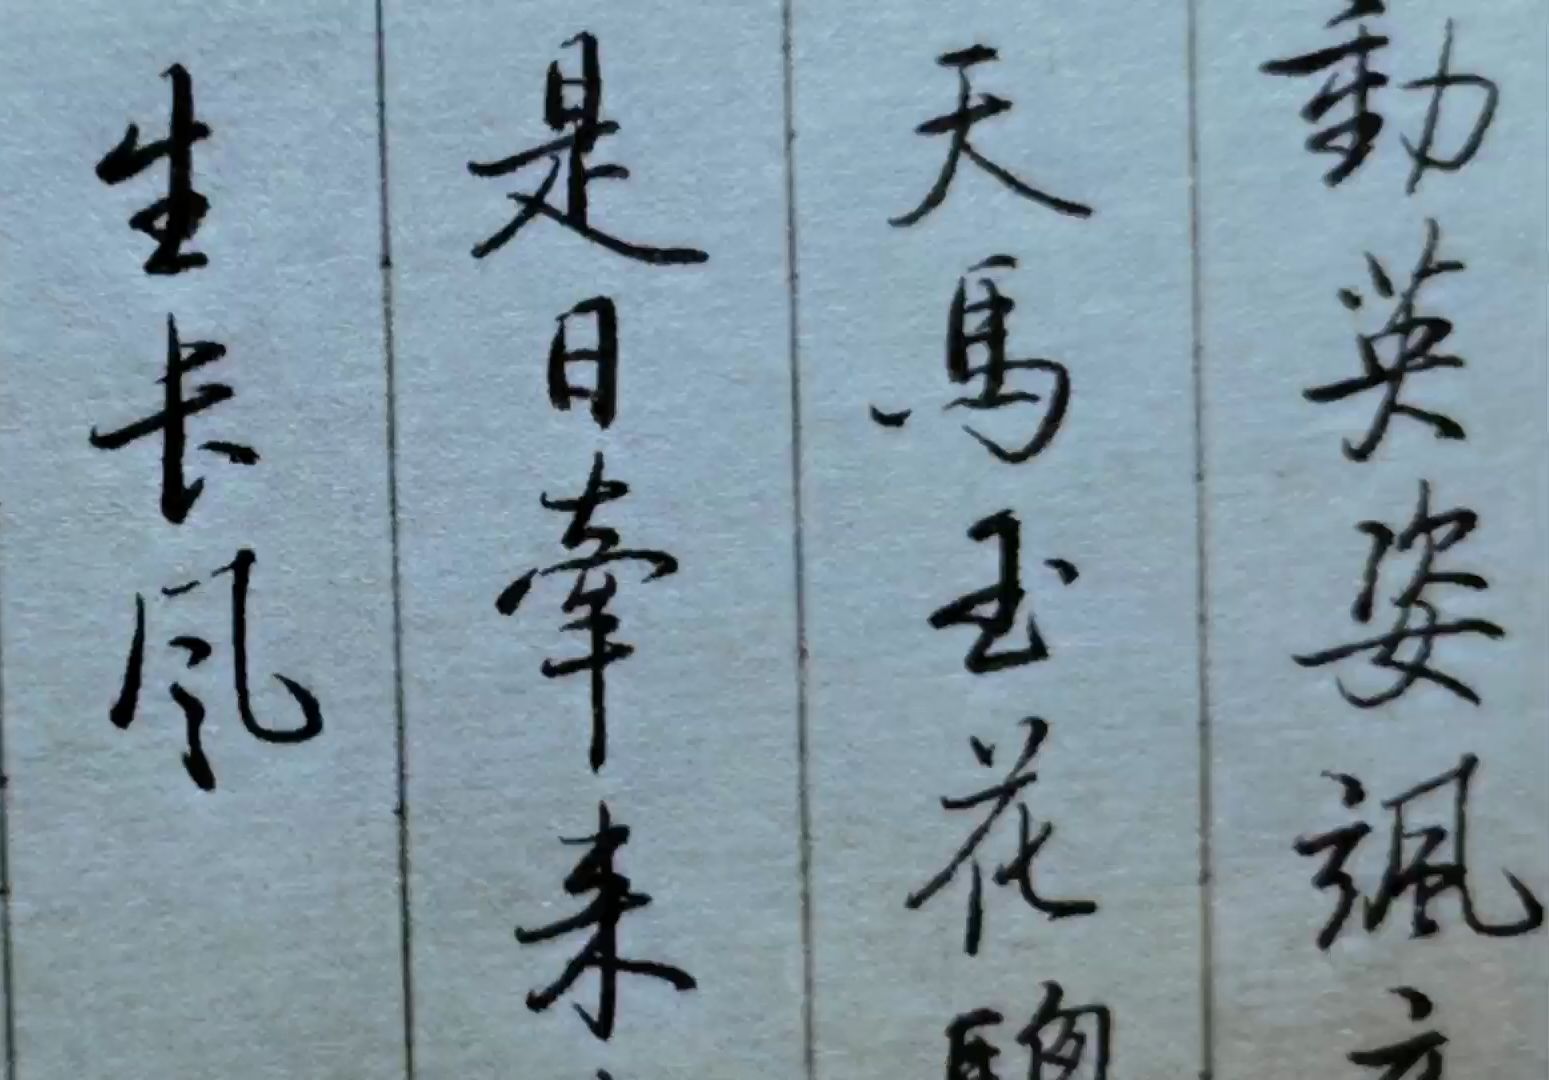 動英姿颯
天馬玉花
是日牽来
生长風